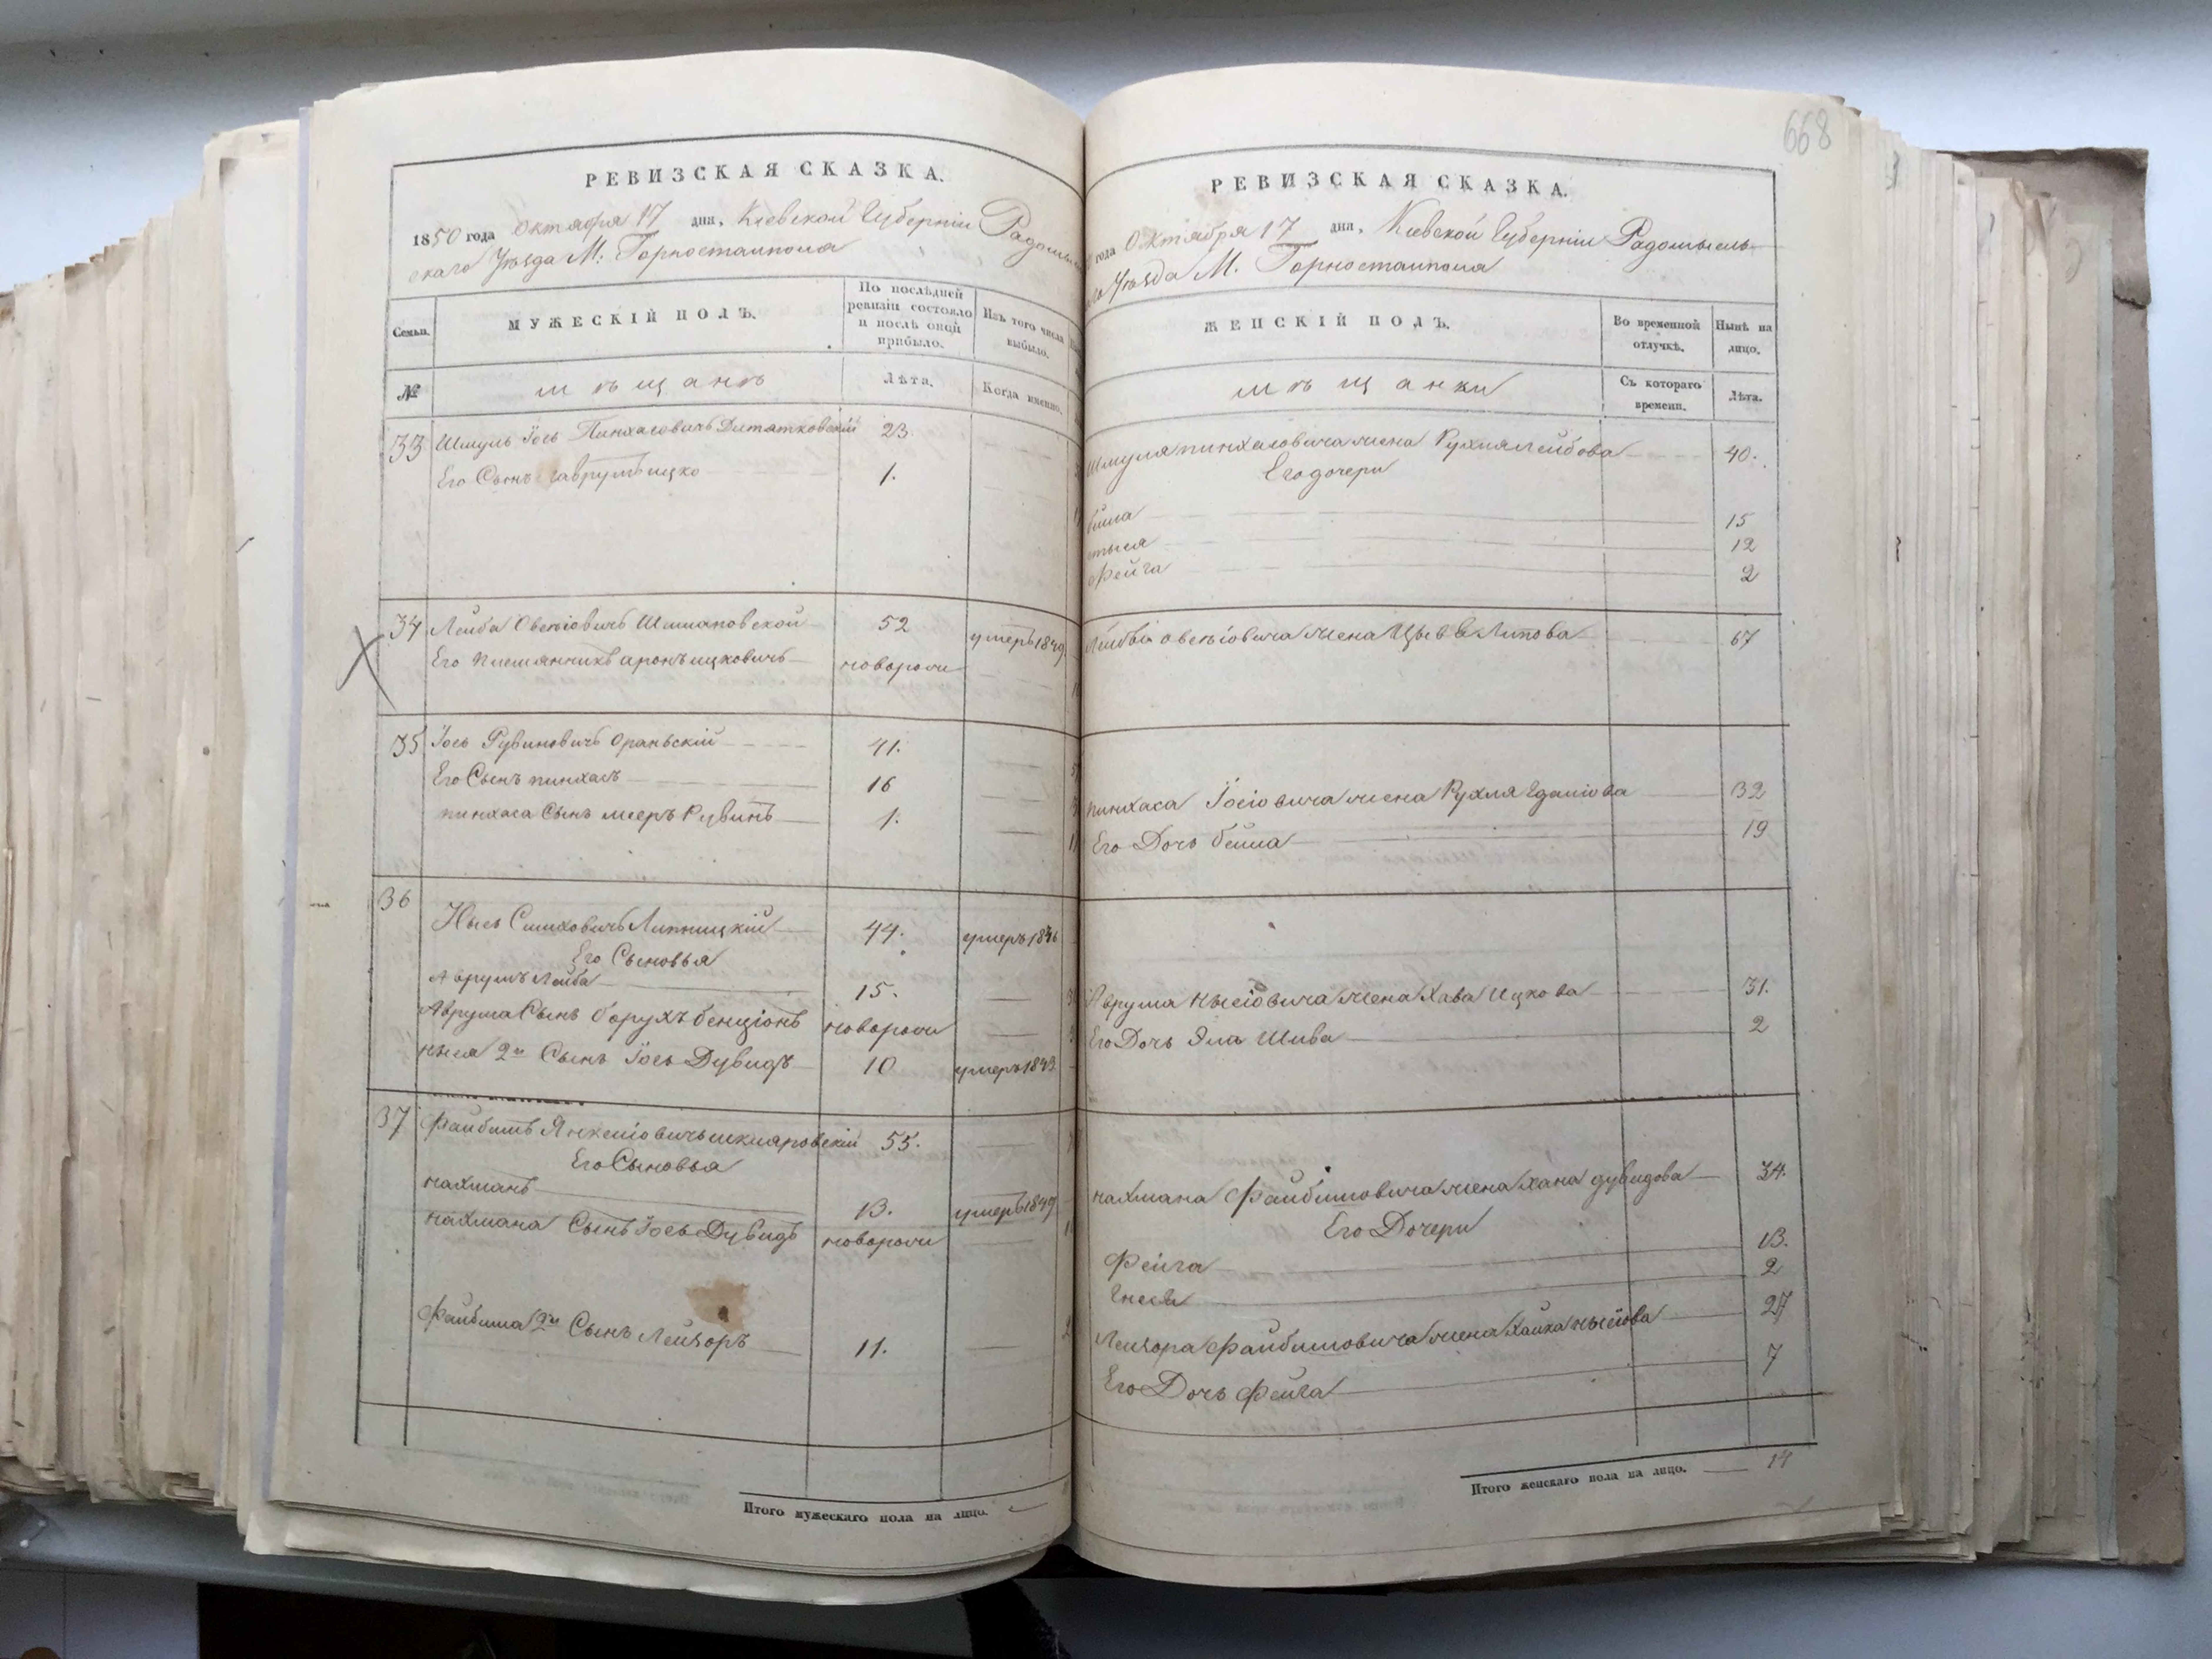 668
РЕВИЗСКАЯ СКАЗКА.
1850 года Октября 17 дня, Кіевской Губерніи Радомысль
скаго Уѣзда М: Горностаиполя
Семьи.
МУЖЕСКІЙ ПОЛЪ.
По послѣдней ревизіи состояло и послѣ оной прибыло.
Изъ того числа выбыло.
№
мѣщанъ
Лѣта.
Когда именно.
33 Шмуль Іось Пинхасовичъ Дитятковскій 23.
Его Сынъ аврумъ ицко 1.
34 Лейба Овсѣіовичъ 52 умеръ 1849
Его племянникъ аронъ ицковичъ новорож
35 Іось Рувиновичъ Ораньскій 41.
Его Сынъ пинхасъ 16
пинхаса Сынъ мееръ Рувинъ 1.
36
Нысь Симховичъ Липницкій 44. умеръ 1846
Его Сыновья
Аврумъ Лейба 15.
Аврума Сынъ борухъ бенціонъ новорож
ныся 2й Сынъ Іось Дувидъ 10 умеръ 1843
37 Файбишъ Янкеліовичъ шкляровскій 55.
Его Сыновья
нахманъ 13. умеръ 1849
нахмана Сынъ Іось Дувидъ новорож
Файбиша 2й Сынъ Лейзоръ 11.
Итого мужескаго пола на лицо.
РЕВИЗСКАЯ СКАЗКА.
года Октября 17 дня, Кіевской Губерніи Радомысль-
Уѣзда М. Горностаиполя
ЖЕНСКІЙ ПОЛЪ.
Во временной отлучкѣ.
Нынѣ на лицо.
мѣщанки
Съ котораго времени.
Лѣта.
Шмуля пинхасовича жена Рухля Лейбова 40.
Его дочери
бейла 15
12
Фейга 2
Лейбы овсѣіовича жена Цывья Липова 67
пинхаса Іосіовича жена Рухля 32
Его Дочь бейла 19
Аврума нысіовича жена Хава Ицкова 31.
Его Дочь Эла Шива 2
нахмана Файбишовича жена хана дувидова 34.
Его Дочери
Фейга 13.
Гнеся 2
Лейзора Файбишовича жена Хайка нысіова 27
Его Дочь Фейга 7
Итого женскаго пола на лицо. 14